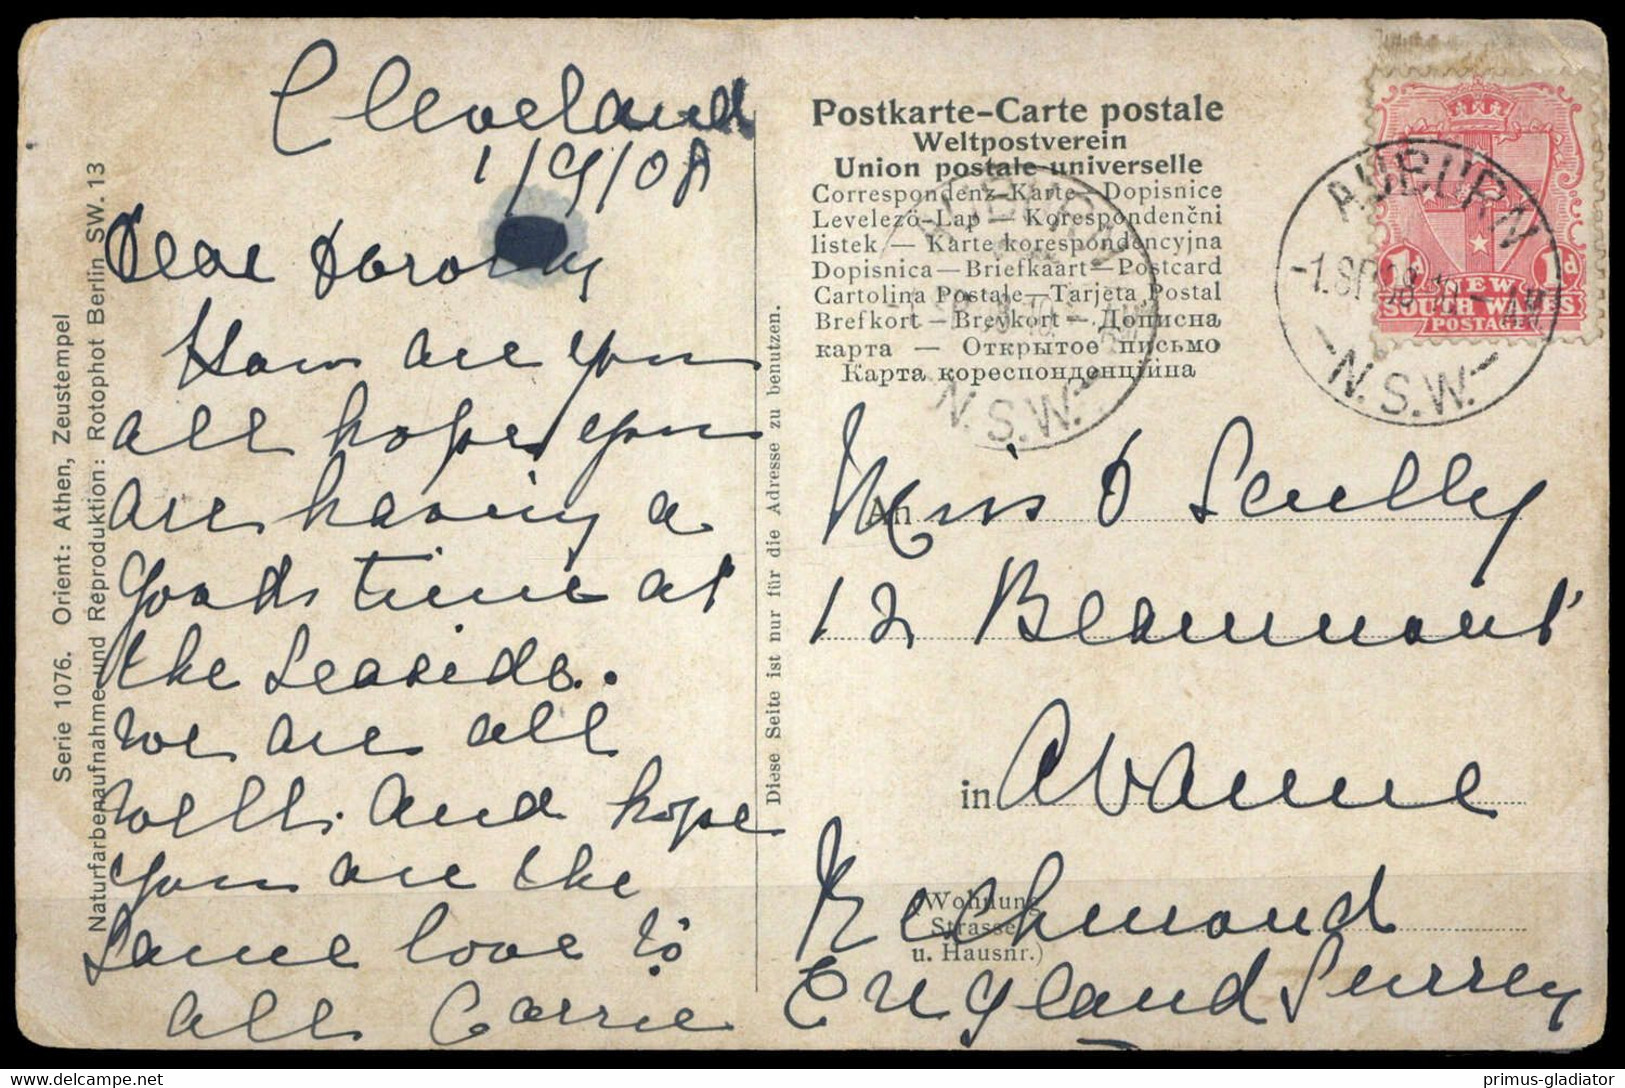 Cleveland
1/9/08
Dear Dorothy
How are you
all hope you
are having a
good time at
the Seaside.
we are all
well. and hope
you are the
Same love to
all Carrie
Serie 1076. Orient: Athen, Zeustempel
Naturfarbenaufnahme und Reproduktion: Rotophot Berlin SW. 13
Diese Seite ist nur für die Adresse zu benutzen.
Postkarte-Carte postale
Weltpostverein
Union postale universelle
Correspondenz-Karte—Dopisnice
Levelezö-Lap — Korespondenčni
listek — Karte korespondencyjna
Dopisnica—Briefkaart—Postcard
Cartolina Postale—Tarjeta Postal
Brefkort — Brevkort — Дописна
карта — Открытое письмо
Карта кореспонденційна
AUBURN
-1.SP.08 10-AM
N.S.W.
N.S.W.
1d 1d
NEW
SOUTH WALES
POSTAGE
An Miss D Scully
12 Beaumont
in Avanue
Rechmond
(Wohnung
Strasse
u. Hausnr.)
England Surrey
www.delcampe.net
primus-gladiator